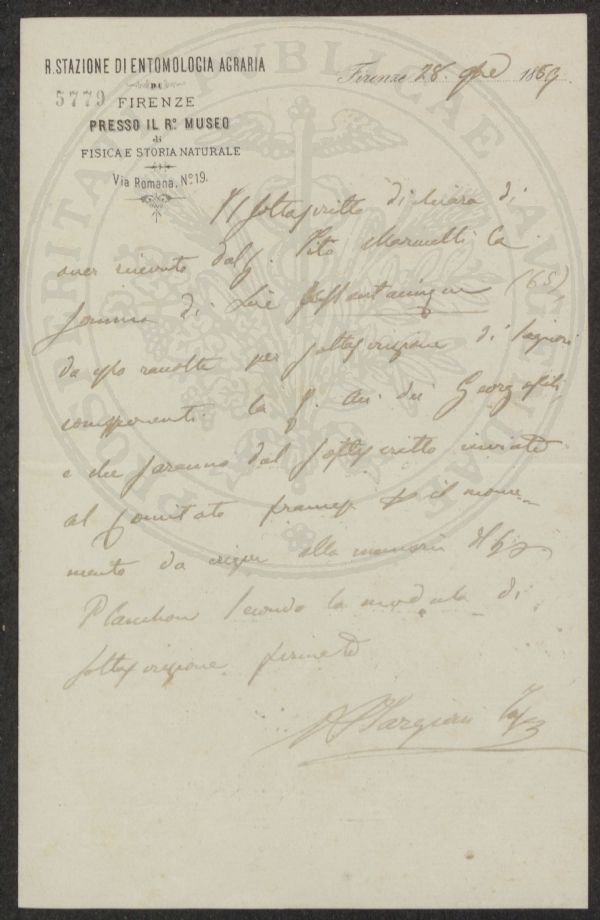 R. STAZIONE DI ENTOMOLOGIA AGRARIA
DI
5779 FIRENZE
PRESSO IL Rº. MUSEO
di
FISICA E STORIA NATURALE
Via Romana, Nº 19.
Firenze 28. 9bre 1889.
Il sottoscritto dichiara di
aver ricevuto dal S. Vito Marinelli la
somma di Lire sessantacinque (65),
da esso raccolte per sottoscrizione di Signori
componenti la R. Acc. dei Georgofili
e che saranno dal sottoscritto inviate
al Comitato frances. p il monu-
mento da eriger alla memoria del
Planchon secondo la modula di
sottoscrizione firmata
A Targioni Tozz
PROSPERITATI PUBLICAE AUGENDAE